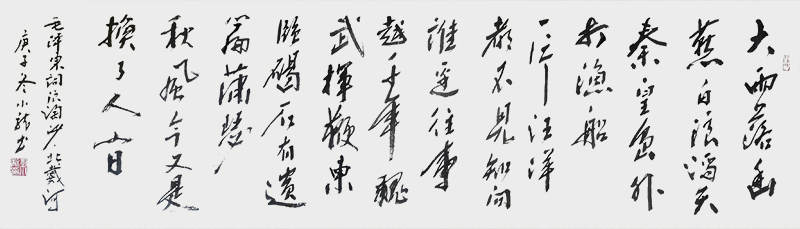 大雨落幽
燕白浪滔天
秦皇岛外
打渔船
一片汪洋
都不见知向
谁边往事
越千年魏
武挥鞭东
临碣石有遗
篇萧瑟
秋风今又是
换了人间
毛泽东词浪淘沙北戴河
庚子冬小龙书